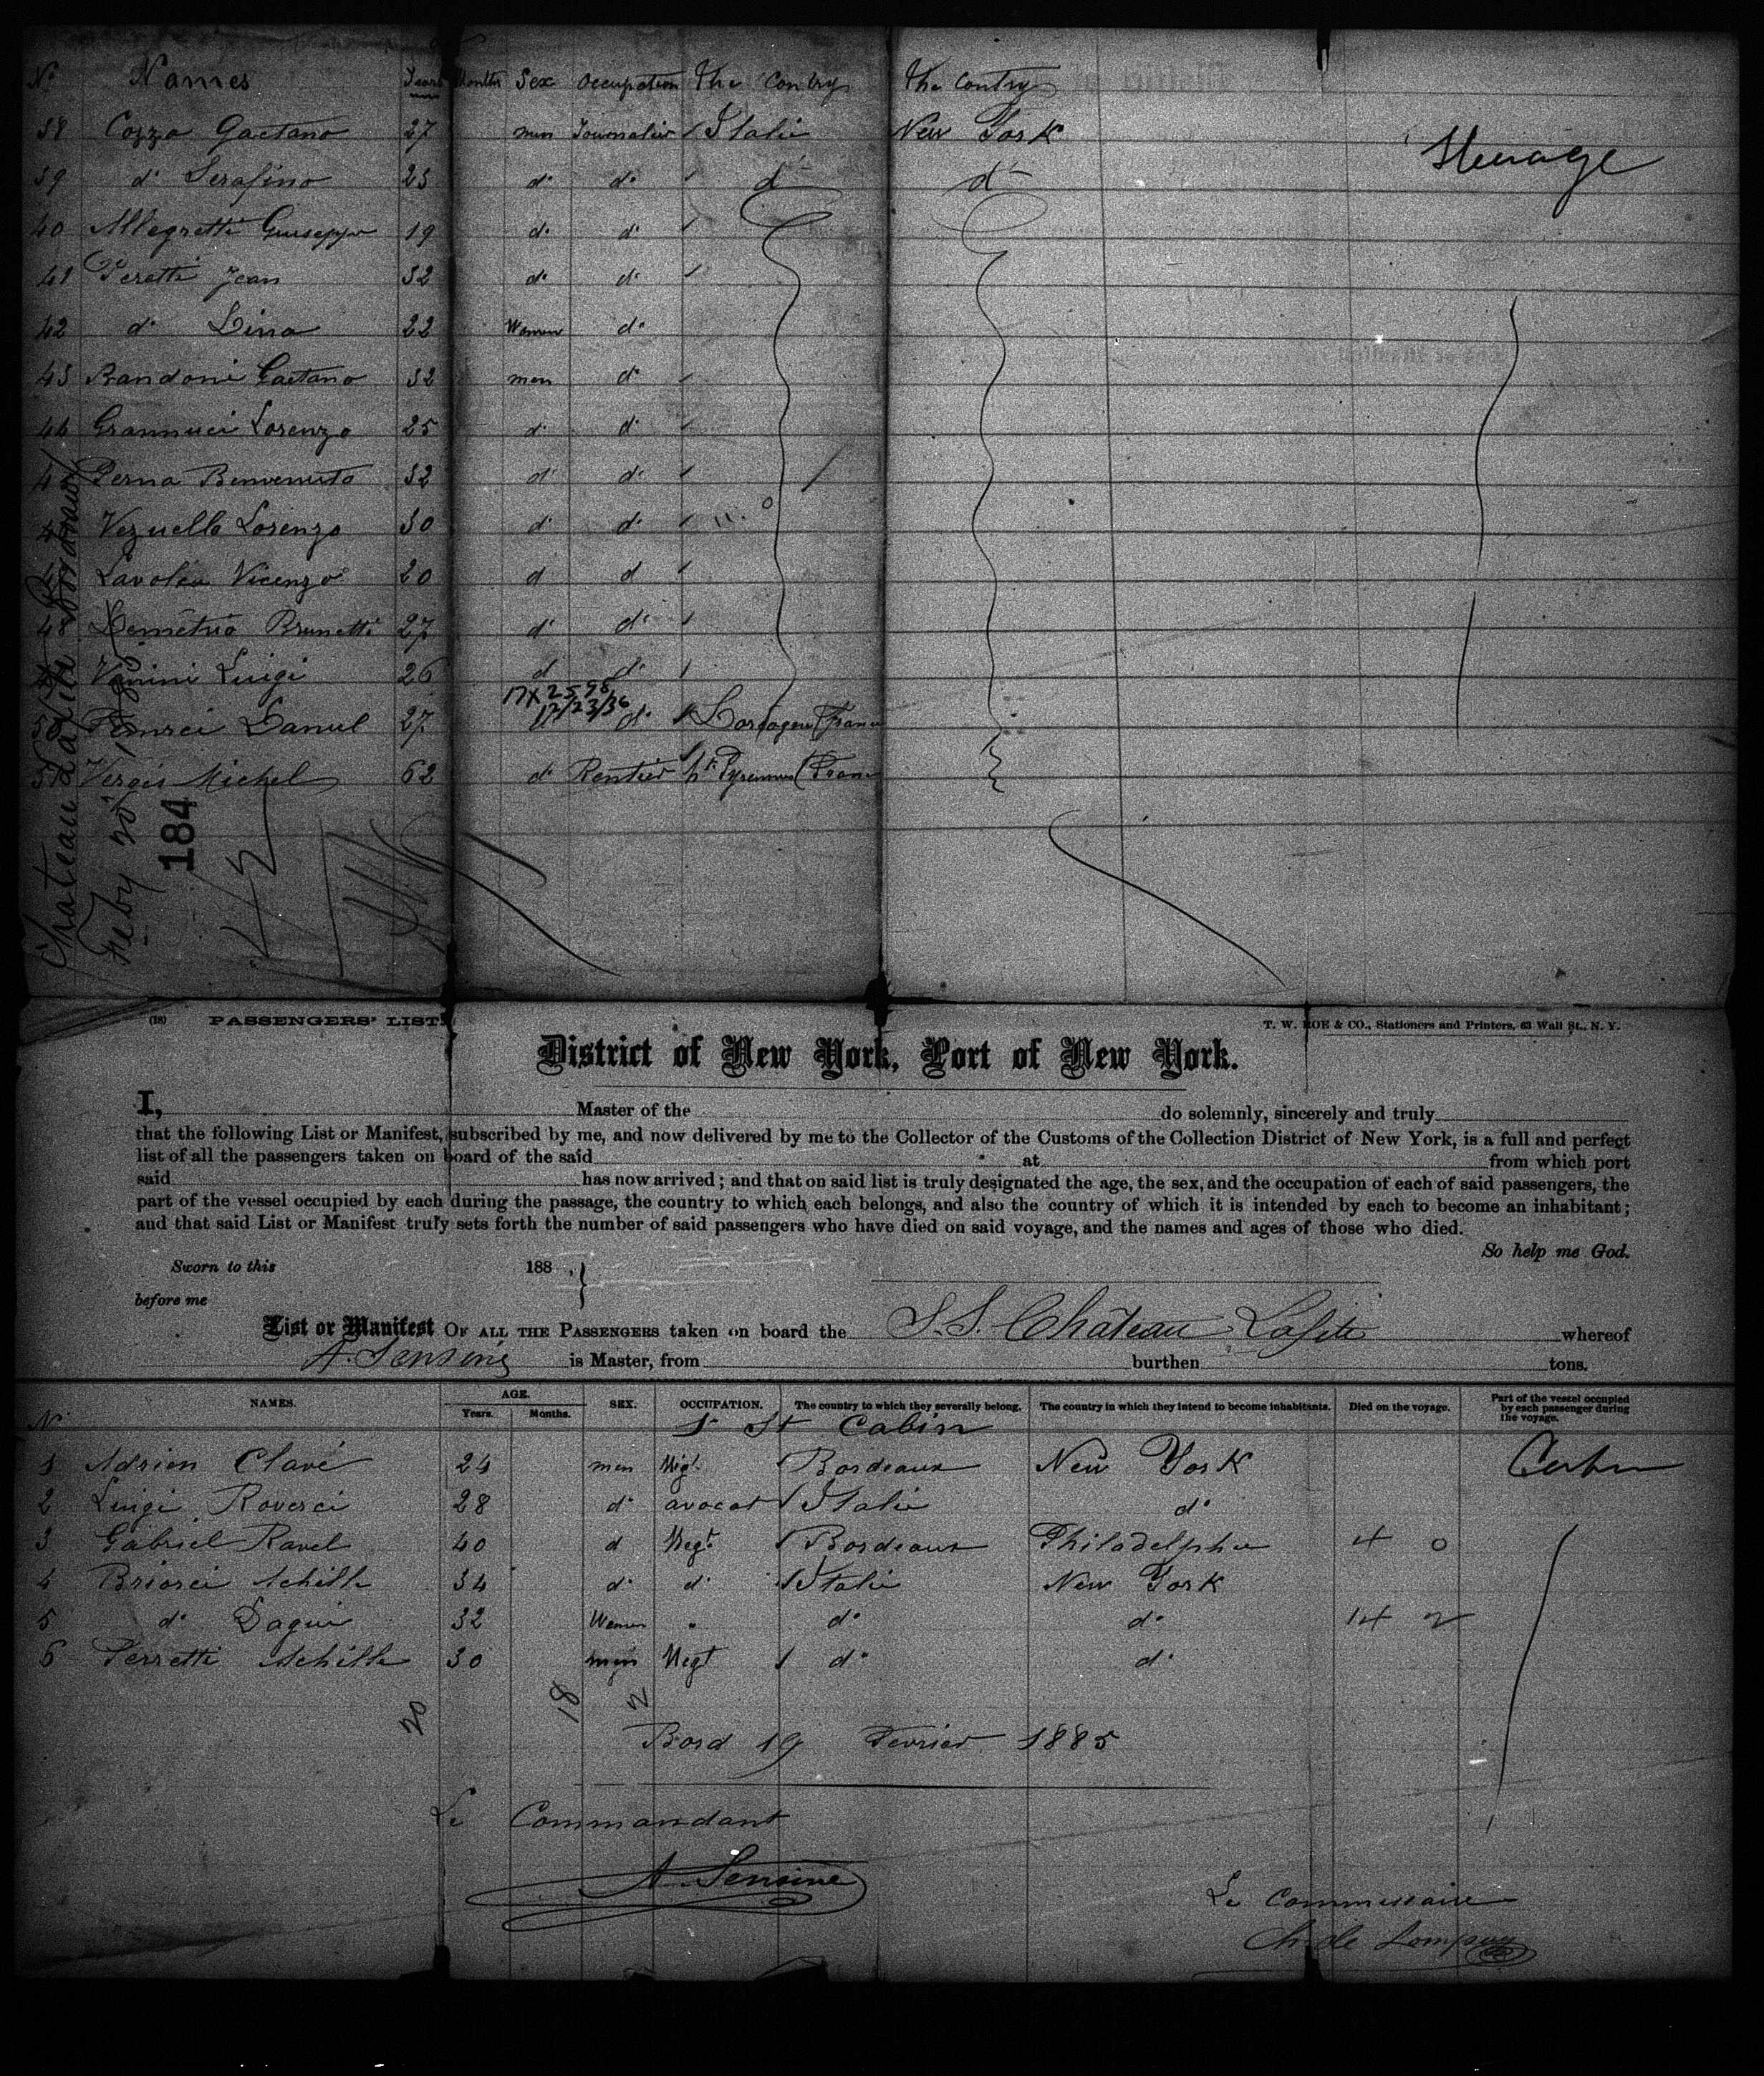 No Names Years Months Sex Occupation The Contry The Contry
38 Cozza Gaetano 27 men Journalier Italie New York
Steerage
39 d° Serafino 25 d° d° d° d°
40 Allegretti Guiseppe 19 d° d°
41 Peretti Jean 32 d° d°
42 d° Lina 22 Women d°
43 Bandoni Gaetano 32 men d°
44 Grannucci Lorenzo 25 d° d°
45 Perna Benvenuto 32 d° d°
Vezuello Lorenzo 30 d° d°
Vicenzo 20 d d
48 Demetrio Brunetti 27 d° d°
Vanini Luigi 26 d d°
17X 2598
12/23/36
50 Daniel 27 d° (France
51 Vergès Michel 62 d° Rentier Hte Pyrennees (France
Chateau Lafite Bordeaux
Feby 20, 1885
184
(18) PASSENGERS' LIST.
T. W. ROE & CO., Stationers and Printers, 63 Wall St., N. Y.
District of New York, Port of New York.
I, Master of the do solemnly, sincerely and truly
that the following List or Manifest, subscribed by me, and now delivered by me to the Collector of the Customs of the Collection District of New York, is a full and perfect
list of all the passengers taken on board of the said at from which port
said has now arrived; and that on said list is truly designated the age, the sex, and the occupation of each of said passengers, the
part of the vessel occupied by each during the passage, the country to which each belongs, and also the country of which it is intended by each to become an inhabitant;
and that said List or Manifest truly sets forth the number of said passengers who have died on said voyage, and the names and ages of those who died.
So help me God.
Sworn to this 188 ,
before me
List or Manifest OF ALL THE PASSENGERS taken on board the S.S. Château Lafite whereof
A. Sensine is Master, from burthen tons.
N° NAMES. AGE. Years. Months. SEX. OCCUPATION. The country to which they severally belong. The country in which they intend to become inhabitants. Died on the voyage. Part of the vessel occupied by each passenger during the voyage.
1 St Cabin
1 Adrien Clavé 24 men Negt Bordeaux New York Cabin
2 Luigi Roversi 28 d° avocat Italie d°
3 Gabriel Ravel 40 d Negt Bordeaux Philadelphie 4 0
4 Briosci Achille 34 d° d° Italie New York
5 d° 32 Women " d° d° 14 2
6 Perretti Achille 30 men Negt d° d°
20 18 2
Bord 19 Fevrier 1885
Le Commandant
A. Sensine
Le Commissaire